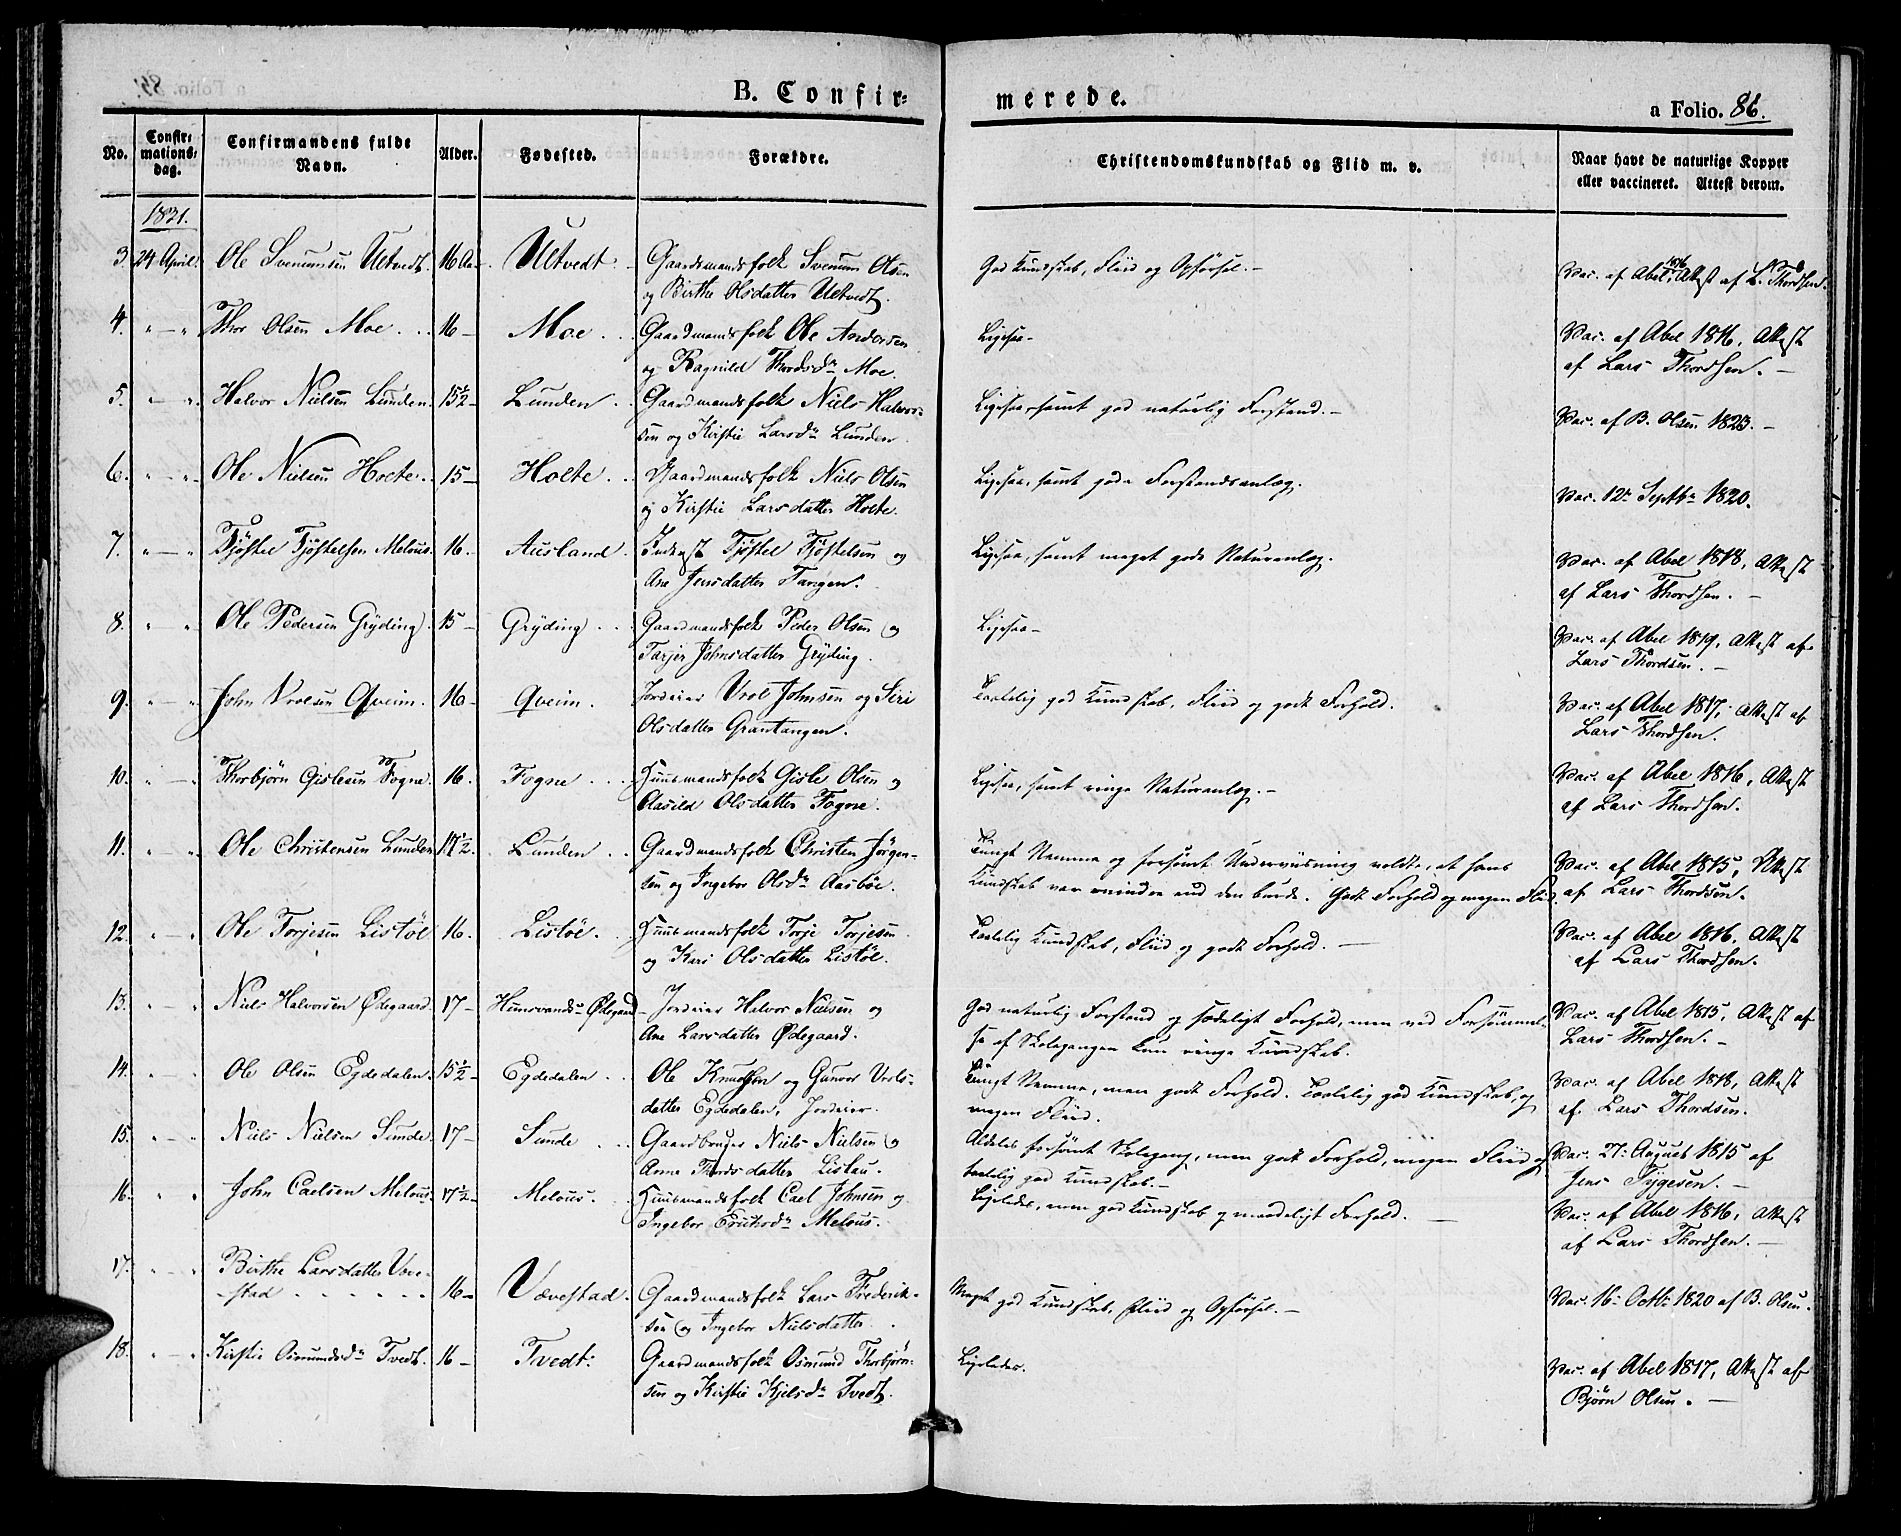 B. Confir=
merede.
a Folio. 86.
No.
Confir=
mations=
dag.
Confirmandens fulde
Navn.
Alder.
Fødested.
Forældre.
Christendomskundskab og Flid m. v.
Naar havt de naturlige Kopper
eller vaccineret. Attest derom.
1831.
3. 24 April. Ole Svenumsen Ultvedt. 16 Aar Ultvedt. Gaardmandsfolk Svenum Olsen
og Birthe Olsdatter Ultvedt.
God Kundskab, Fliid og Opførsel. –
Vac. af Abel 1816, Attest af L. Thordsen.
4. " — " Thor Olsen Moe 16 – Moe Gaardmandsfolk Ole Andersen
og Ragnild Thordsdr Moe.
Ligesaa –
Vac. af Abel 1816, Attest
af Lars Thordsen. –
5. " — " Halvor Nielsen Lunden. 15½ – Lunden Gaardmandsfolk Niels Halvor=
sen og Kirstie Larsdr Lunden.
Ligesaa, samt god naturlig Forstand. –
Vac. af B. Olsen 1823. –
6. " — " Ole Nielsen Holte 15 – Holte Gaardmandsfolk Niels Olsen
og Kirstie Larsdatter Holte.
Ligesaa, samt gode Forstandsanlæg.
Vac. 12te Septbr 1820.
7. " — " Tjøstel Tjøstelsen Melous. 16. Ausland. Tjøstel Tjøstelsen og
Ane Jensdatter Tangen.
Ligesaa, samt meget gode Naturanlæg.
Vac. af Abel 1818, Attest
af Lars Thordsen. –
8. " " Ole Pedersen Gryding. 15 – Gryding Gaardmandsfolk Peder Olsen og
Tarjer Johnsdatter Gryding.
Ligesaa –
Vac. af Abel 1819, Attest af
Lars Thordsen. –
9. " — " John Vrolsen Qveim. 16 – Qveim. Jordeier Vrol Johnsen og Siri
Olsdatter Grantangen.
Taalelig god Kundskab, Fliid og godt Forhold.
Vac. af Abel 1817, Attest af
Lars Thordsen.
10. " — " Thorbjørn Gislesen Fogne. 16. Fogne Huusmandsfolk Gisle Olsen og
Aasild Olsdatter Fogne.
Ligesaa, samt ringe Naturanlæg. –
Vac. af Abel 1816, Attest
af Lars Thordsen.
11. " — " Ole Christensen Lunden 17½ Lunden Gaardmandsfolk Christen Jørgen=
sen og Ingebor Olsdr Aasbøe.
Tungt Nemme og forsømt Underviisning voldte, at hans
Kundskab var mindre end den burde. Godt Forhold og megen Fliid.
Vac. af Abel 1815, Attest
af Lars Thordsen.
12. " — " Ole Torjesen Listøl 16. Listøl. Huusmandsfolk Torje Torjesen
og Kari Olsdatter Listøl.
Taalelig Kundskab, Fliid og godt Forhold. —
Vac. af Abel 1816, Attest
af Lars Thordsen.
13. " — " Niels Halvorsen Ødegaard 17 – Hunsvands Ødegaard – Jordeier Halvor Nielsen og
Ane Larsdatter Ødegaard.
God naturlig Forstand og sædeligt Forhold, men ved Forsømmel=
se af Skolegangen kun ringe Kundskab.
Vac. af Abel 1815, Attest af
Lars Thordsen. –
14. " — " Ole Olsen Egdedalen. 15½ – Egdedalen Ole Knudsen og Gunvor Vrols=
datter Egdedalen, Jordeier.
Tungt Nemme, men godt Forhold. Taalelig god Kundskab, og
megen Fliid.
Vac. af Abel 1818, Attest
af Lars Thordsen.
15. " — " Niels Nielsen Sunde. 17 – Sunde Gaardbruger Niels Nielsen og
Anne Thordsdatter Listau.
Aldeles forsømt Skolegang, men godt Forhold, megen Fliid og
taalelig god Kundskab. –
Vac. 27. August 1815 af
Jens Tygesen. –
16. " " John Carlsen Melous. 17½ – Melous. Huusmandsfolk Carl Johnsen og
Ingebor Eriksdr Melous.
Ligeledes, men god Kundskab og maadeligt Forhold. —
Vac. af Abel 1816, Attest
af Lars Thordsen. –
17. " — " Birthe Larsdatter Væve=
stad 16 – Vævestad. Gaardmandsfolk Lars Frederik=
sen og Ingebor Nielsdatter.
Meget god Kundskab, Fliid og Opførsel. –
Vac. 16. Octbr 1820 af B. Olsen.
18. " — " Kirstie Osmundsdr Tvedt. 16 – Tvedt. Gaardmandsfolk Osmund Thorbjørn=
sen og Kirstie Kjelsdr Tvedt.
Ligeledes.
Vac. af Abel 1817, Attest af
Bjørn Olsen. —